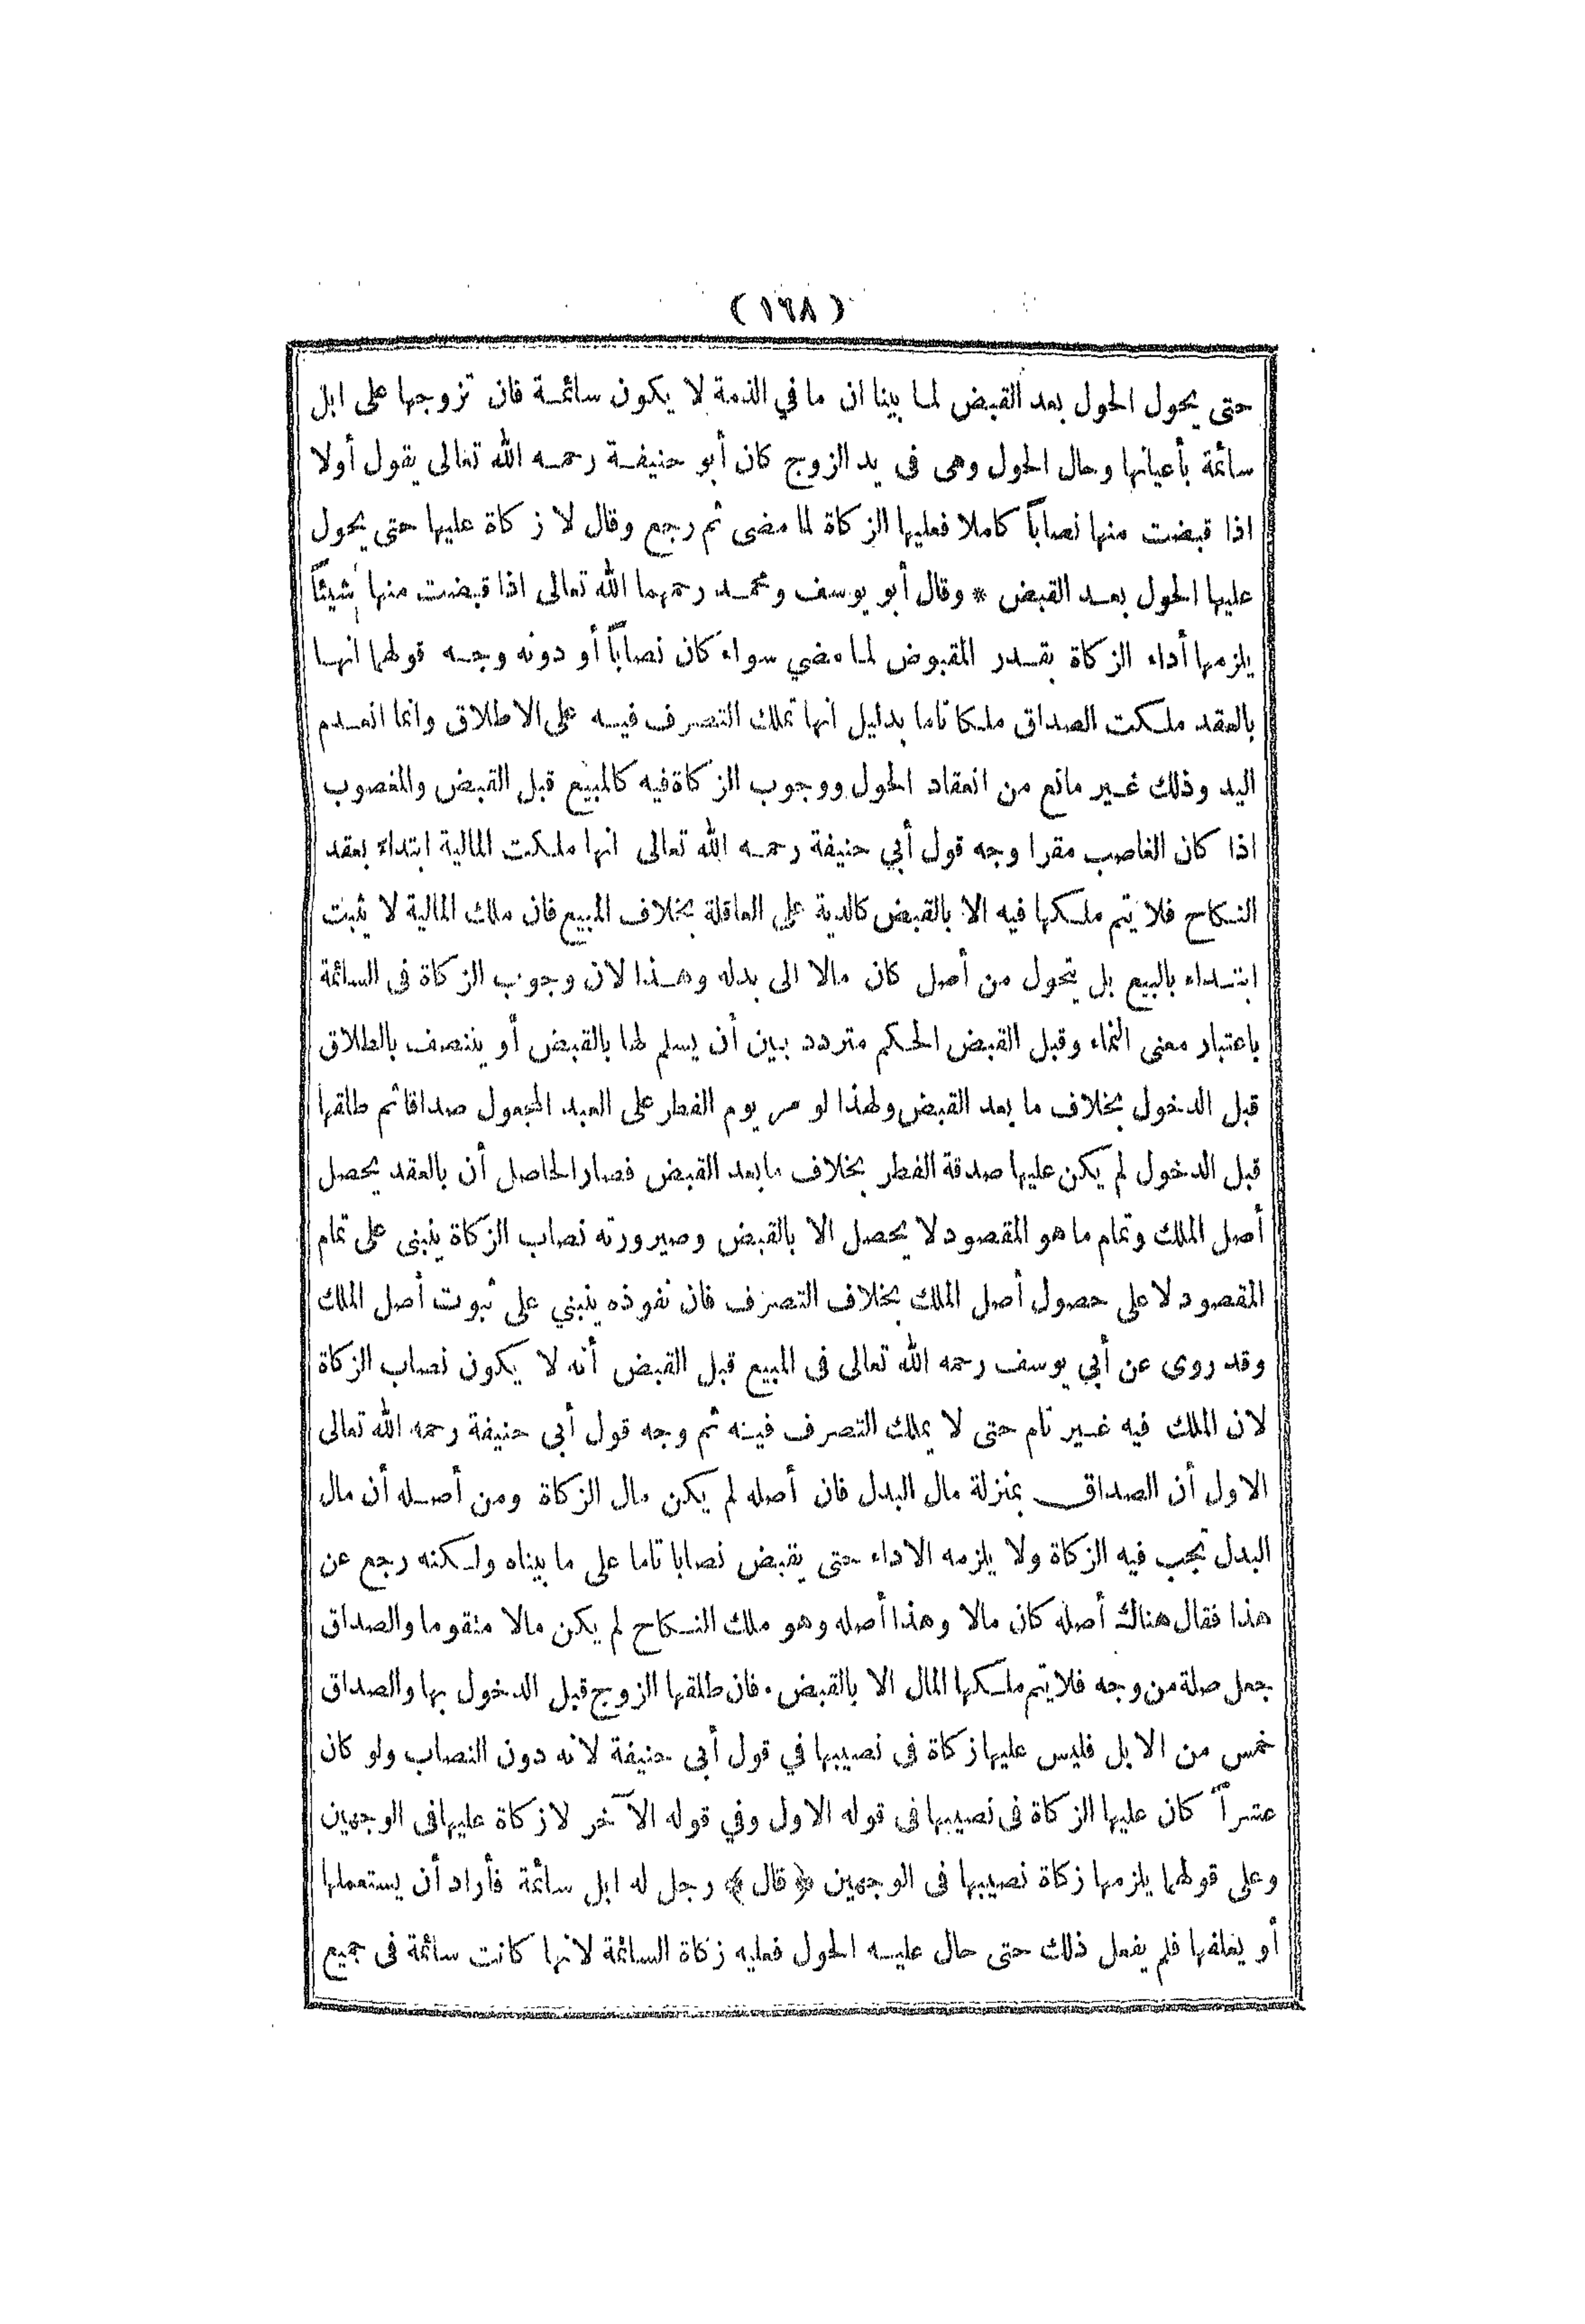 (١٦٨)
حتى يحول الحول بعد القبض لما بينا ان ما في الذمة لا يكون سائمة فان تزوجها على ابل
سائمة بأعيانها وحال الحول وهى فى يد الزوج كان أبو حنيفة رحمه الله تعالى يقول أولا
اذا قبضت منها نصاباً كاملا فعليها الزكاة لما مضى ثم رجع وقال لا زكاة عليها حتى يحول
عليها الحول بعد القبض * وقال أبو يوسف ومحمد رحمهما الله تعالى اذا قبضت منها شيئاً
يلزمها أداء الزكاة بقدر المقبوض لما مضي سواء كان نصاباً أو دونه وجه قولهما انها
بالعقد ملكت الصداق ملكا تاما بدليل انها تملك التصرف فيه على الاطلاق وانما انعدم
اليد وذلك غير مانع من انعقاد الحول ووجوب الزكاة فيه كالمبيع قبل القبض والمغصوب
اذا كان الغاصب مقرا وجه قول أبي حنيفة رحمه الله تعالى انها ملكت المالية ابتداء بعقد
النكاح فلا يتم ملكها فيه الا بالقبض كالدية علي العاقلة بخلاف المبيع فان ملك المالية لا يثبت
ابتداء بالبيع بل يتحول من أصل كان مالا الى بدله وهذا لان وجوب الزكاة فى السائمة
باعتبار معنى النماء وقبل القبض الحكم متردد بين أن يسلم لها بالقبض أو يتنصف بالطلاق
قبل الدخول بخلاف ما بعد القبض ولهذا لو مر يوم الفطر على العبد المجعول صداقا ثم طلقها
قبل الدخول لم يكن عليها صدقة الفطر بخلاف ما بعد القبض فصار الحاصل أن بالعقد يحصل
أصل الملك وتمام ما هو المقصود لا يحصل الا بالقبض وصيرورته نصاب الزكاة ينبنى على تمام
المقصود لا على حصول أصل الملك بخلاف التصرف فان نفوذه ينبني على ثبوت أصل الملك
وقد روى عن أبي يوسف رحمه الله تعالى فى المبيع قبل القبض أنه لا يكون نصاب الزكاة
لان الملك فيه غير تام حتى لا يملك التصرف فيه ثم وجه قول أبى حنيفة رحمه الله تعالى
الاول أن الصداق بمنزلة مال البدل فان أصله لم يكن مال الزكاة ومن أصله أن مال
البدل تجب فيه الزكاة ولا يلزمه الاداء حتى يقبض نصابا تاما على ما بيناه ولكنه رجع عن
هذا فقال هناك أصله كان مالا وهذا أصله وهو ملك النكاح لم يكن مالا متقوما والصداق
جعل صلة من وجه فلا يتم ملكها المال الا بالقبض . فان طلقها الزوج قبل الدخول بها والصداق
خمس من الابل فليس عليها زكاة فى نصيبها في قول أبى حنيفة لانه دون النصاب ولو كان
عشراً كان عليها الزكاة فى نصيبها فى قوله الاول وفي قوله الآخر لا زكاة عليها فى الوجهين
وعلى قولهما يلزمها زكاة نصيبها فى الوجهين ﴿قال﴾ رجل له ابل سائمة فأراد أن يستعملها
أو يعلفها فلم يفعل ذلك حتى حال عليه الحول فعليه زكاة السائمة لانها كانت سائمة فى جميع